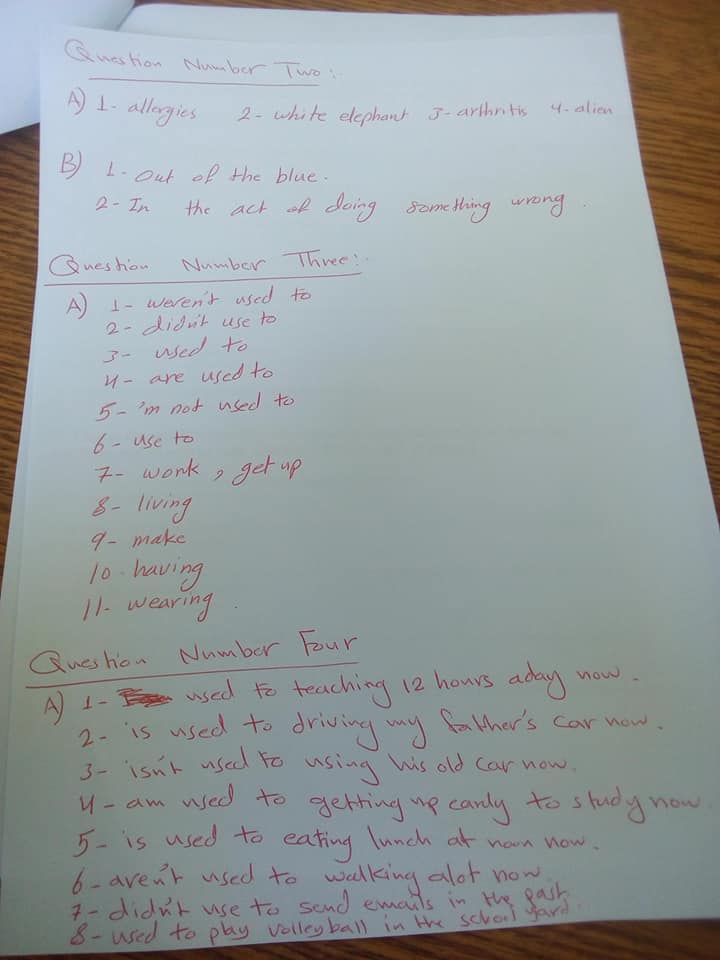 Question Number Two:
A) 1- allergies 2- white elephant 3- arthritis 4- alien
B) 1- out of the blue.
2- In the act of doing something wrong.
Question Number Three:-
A) 1- weren't used to
2- didn't use to
3- used to
4- are used to
5- 'm not used to
6- use to
7- work, get up
8- living
9- make
10- having
11- wearing.
Question Number Four
A) 1- used to teaching 12 hours aday now.
2- is used to driving my father's car now.
3- isn't used to using his old car now.
4- am used to getting up early to study now.
5- is used to eating lunch at noon now.
6- aren't used to walking alot now.
7- didn't use to send emails in the past.
8- used to play volleyball in the school yard.